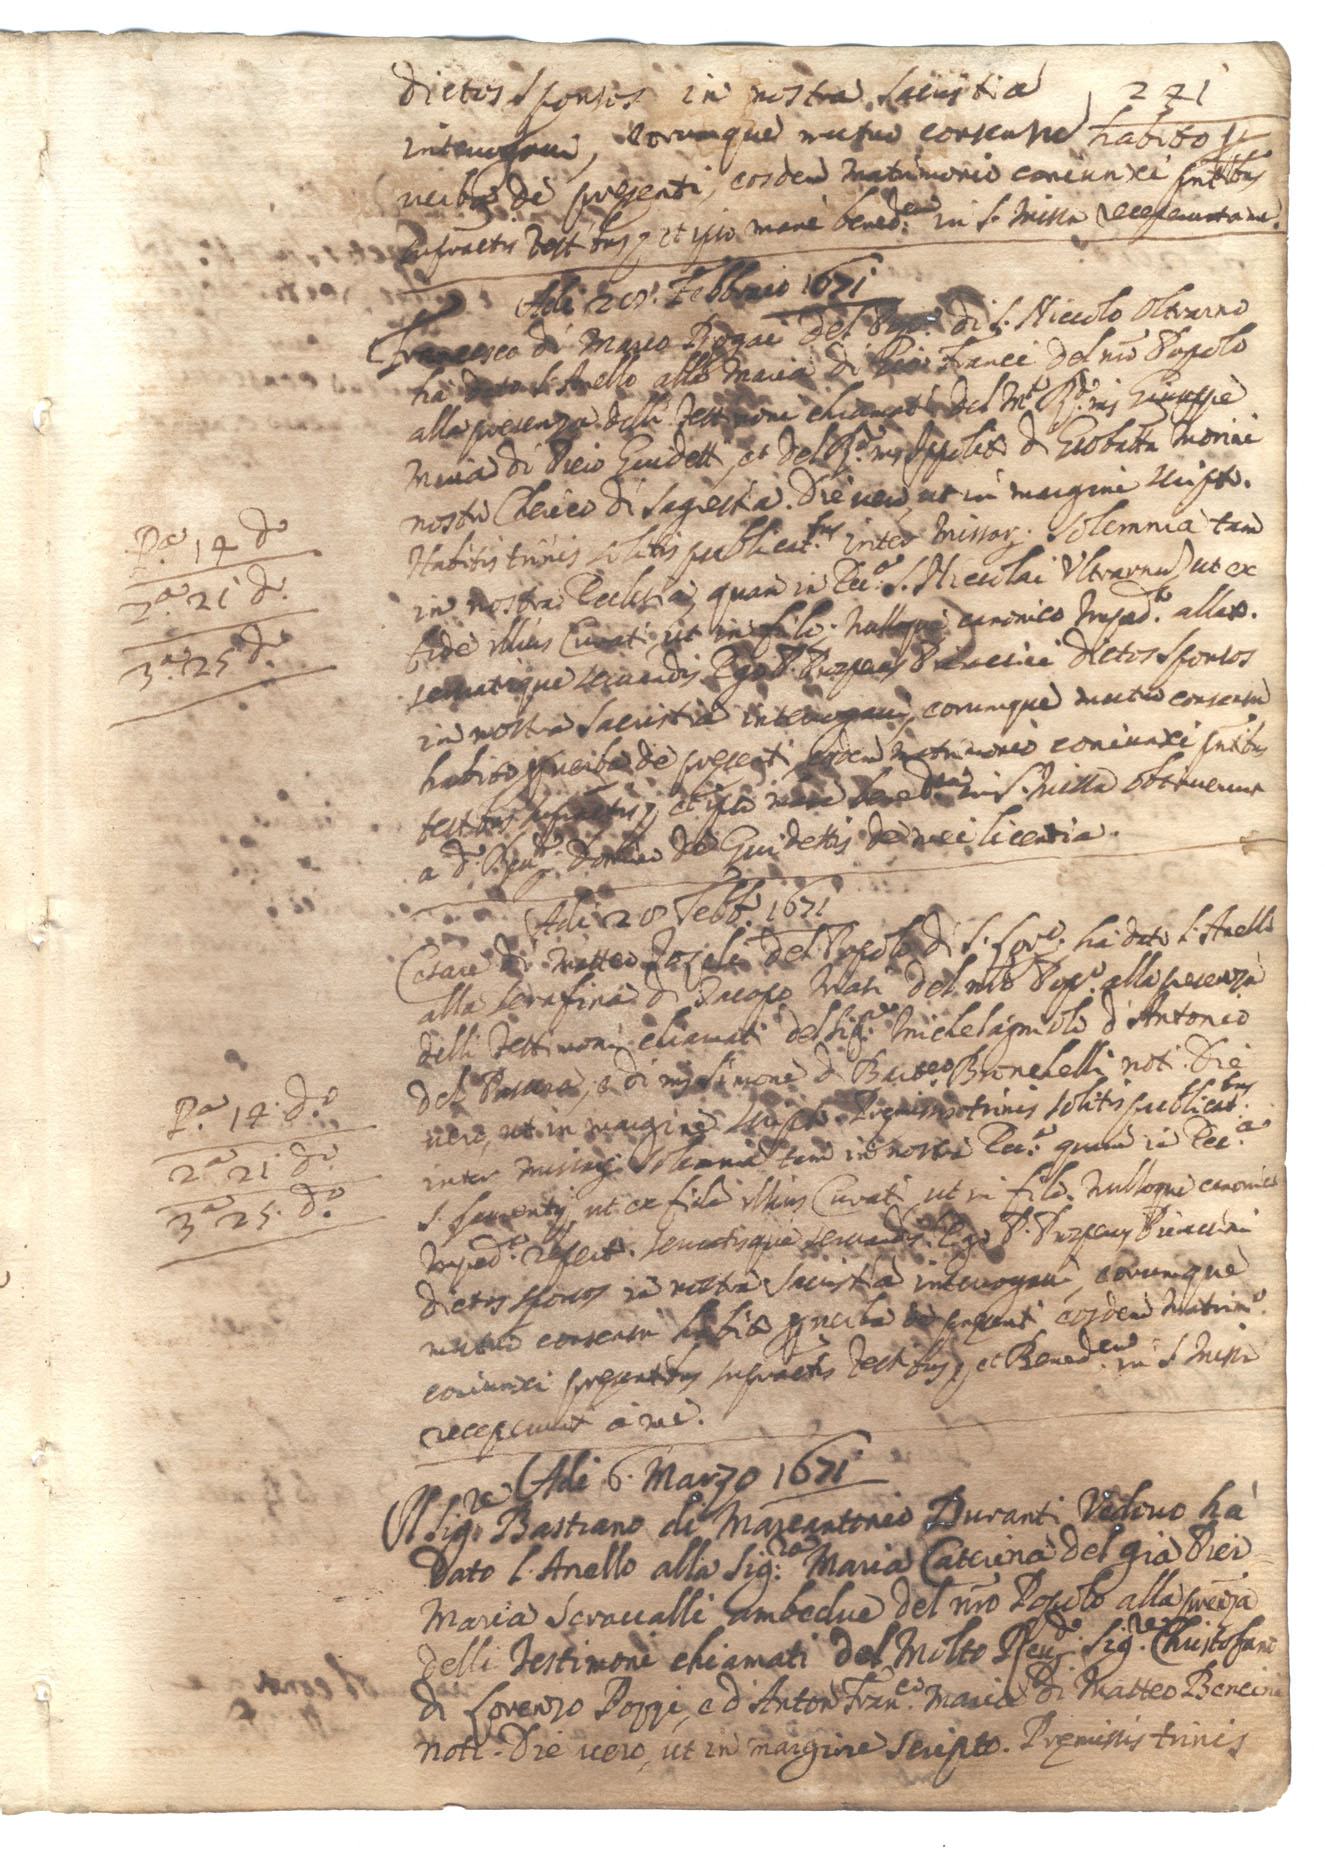 241
dictos sponsos in nostra sacristia
interrogavi, eorumque mutuo consensu habito p
verba de presenti, eosdem matrimonio coniunxi pntibus
infractis testibus, et ipso mane bened.em in S. Missa receperunt a me.
Adi 28. Febbraio 1671
Francesco di Marco del Pop.o di S. Niccolo Oltrarno
ha dato l'Anello alla Maria di Franci del nro Popolo
alla presenza delli testimoni chiamati del M.to R.do ms Giuseppe
Maria di Piero Guidetti, et del R.do ms Ippolito di Giobatta Morini
nostro Cherico di Sagrestia. Die vero, ut in margine script.
P.a 14 d.o
2.a 21 d.o
3.a 25 d.o
Habitis trinis solitis publicat.bus inter missar. solemnia tam
in nostra Ecclesia, quam in Ecc.a S. Nicolai Ultrarnu, ut ex
fide illius Curati, ut in filo, nulloque canonico imped.to allato.
servatisque servandis Ego P. dictos sponsos
in nostra sacristia interrogavi, eorumque mutuo consensu
habito p verba de presenti, eosdem matrimonio coniunxi pntibus
testibus infractis, et ipso mane bened.em in S. Missa obtinuerunt
a d. Reu. de Guidettis de mei licentia.
Adi 28 Febb.o 1671
Cesare di Matteo del Popolo di S. Lor.o ha dato l'Anello
alla Serafina di Jacopo Masi del nro Pop.o alla presenza
delli testimoni chiamati del Sig.re Michelagniolo d'Antonio
del , e di ms Simone di Bart.eo Bronchelli noti. Die
vero, ut in margine script. Premissis trinis solitis publicat.bus
P.a 14. d.o
2.a 21 d.o
3.a 25. d.o
inter missar. solemnia tam in nostra Ecc.a quam in Ecc.a
S. Laurentij, ut ex fide illius Curati, ut in filo. Nulloque canonico
imped.o refert. servatisque servandis. Ego P.
dictos sponsos in nostra sacristia interrogavi, eorumque
mutuo consensu habito p verba de presenti eosdem matrim.o
coniunxi presentibus infractis testibus, et Bened.em in S. Missa
receperunt a me.
Adi 6. Marzo 1671
Il Sig.re Bastiano di Marcantonio Duranti Vedovo ha
Dato l'Anello alla Sig.ra Maria Caterina del gia Pier
Maria Seravalli ambedue del nro Popolo alla prenza
delli Testimoni chiamati del Molto Reu.do Sig.re Christofano
di Lorenzo Poggi, e d'Anton Fran.co Maria di Matteo Bencini
noti. Die vero, ut in margine scripto. Premissis trinis